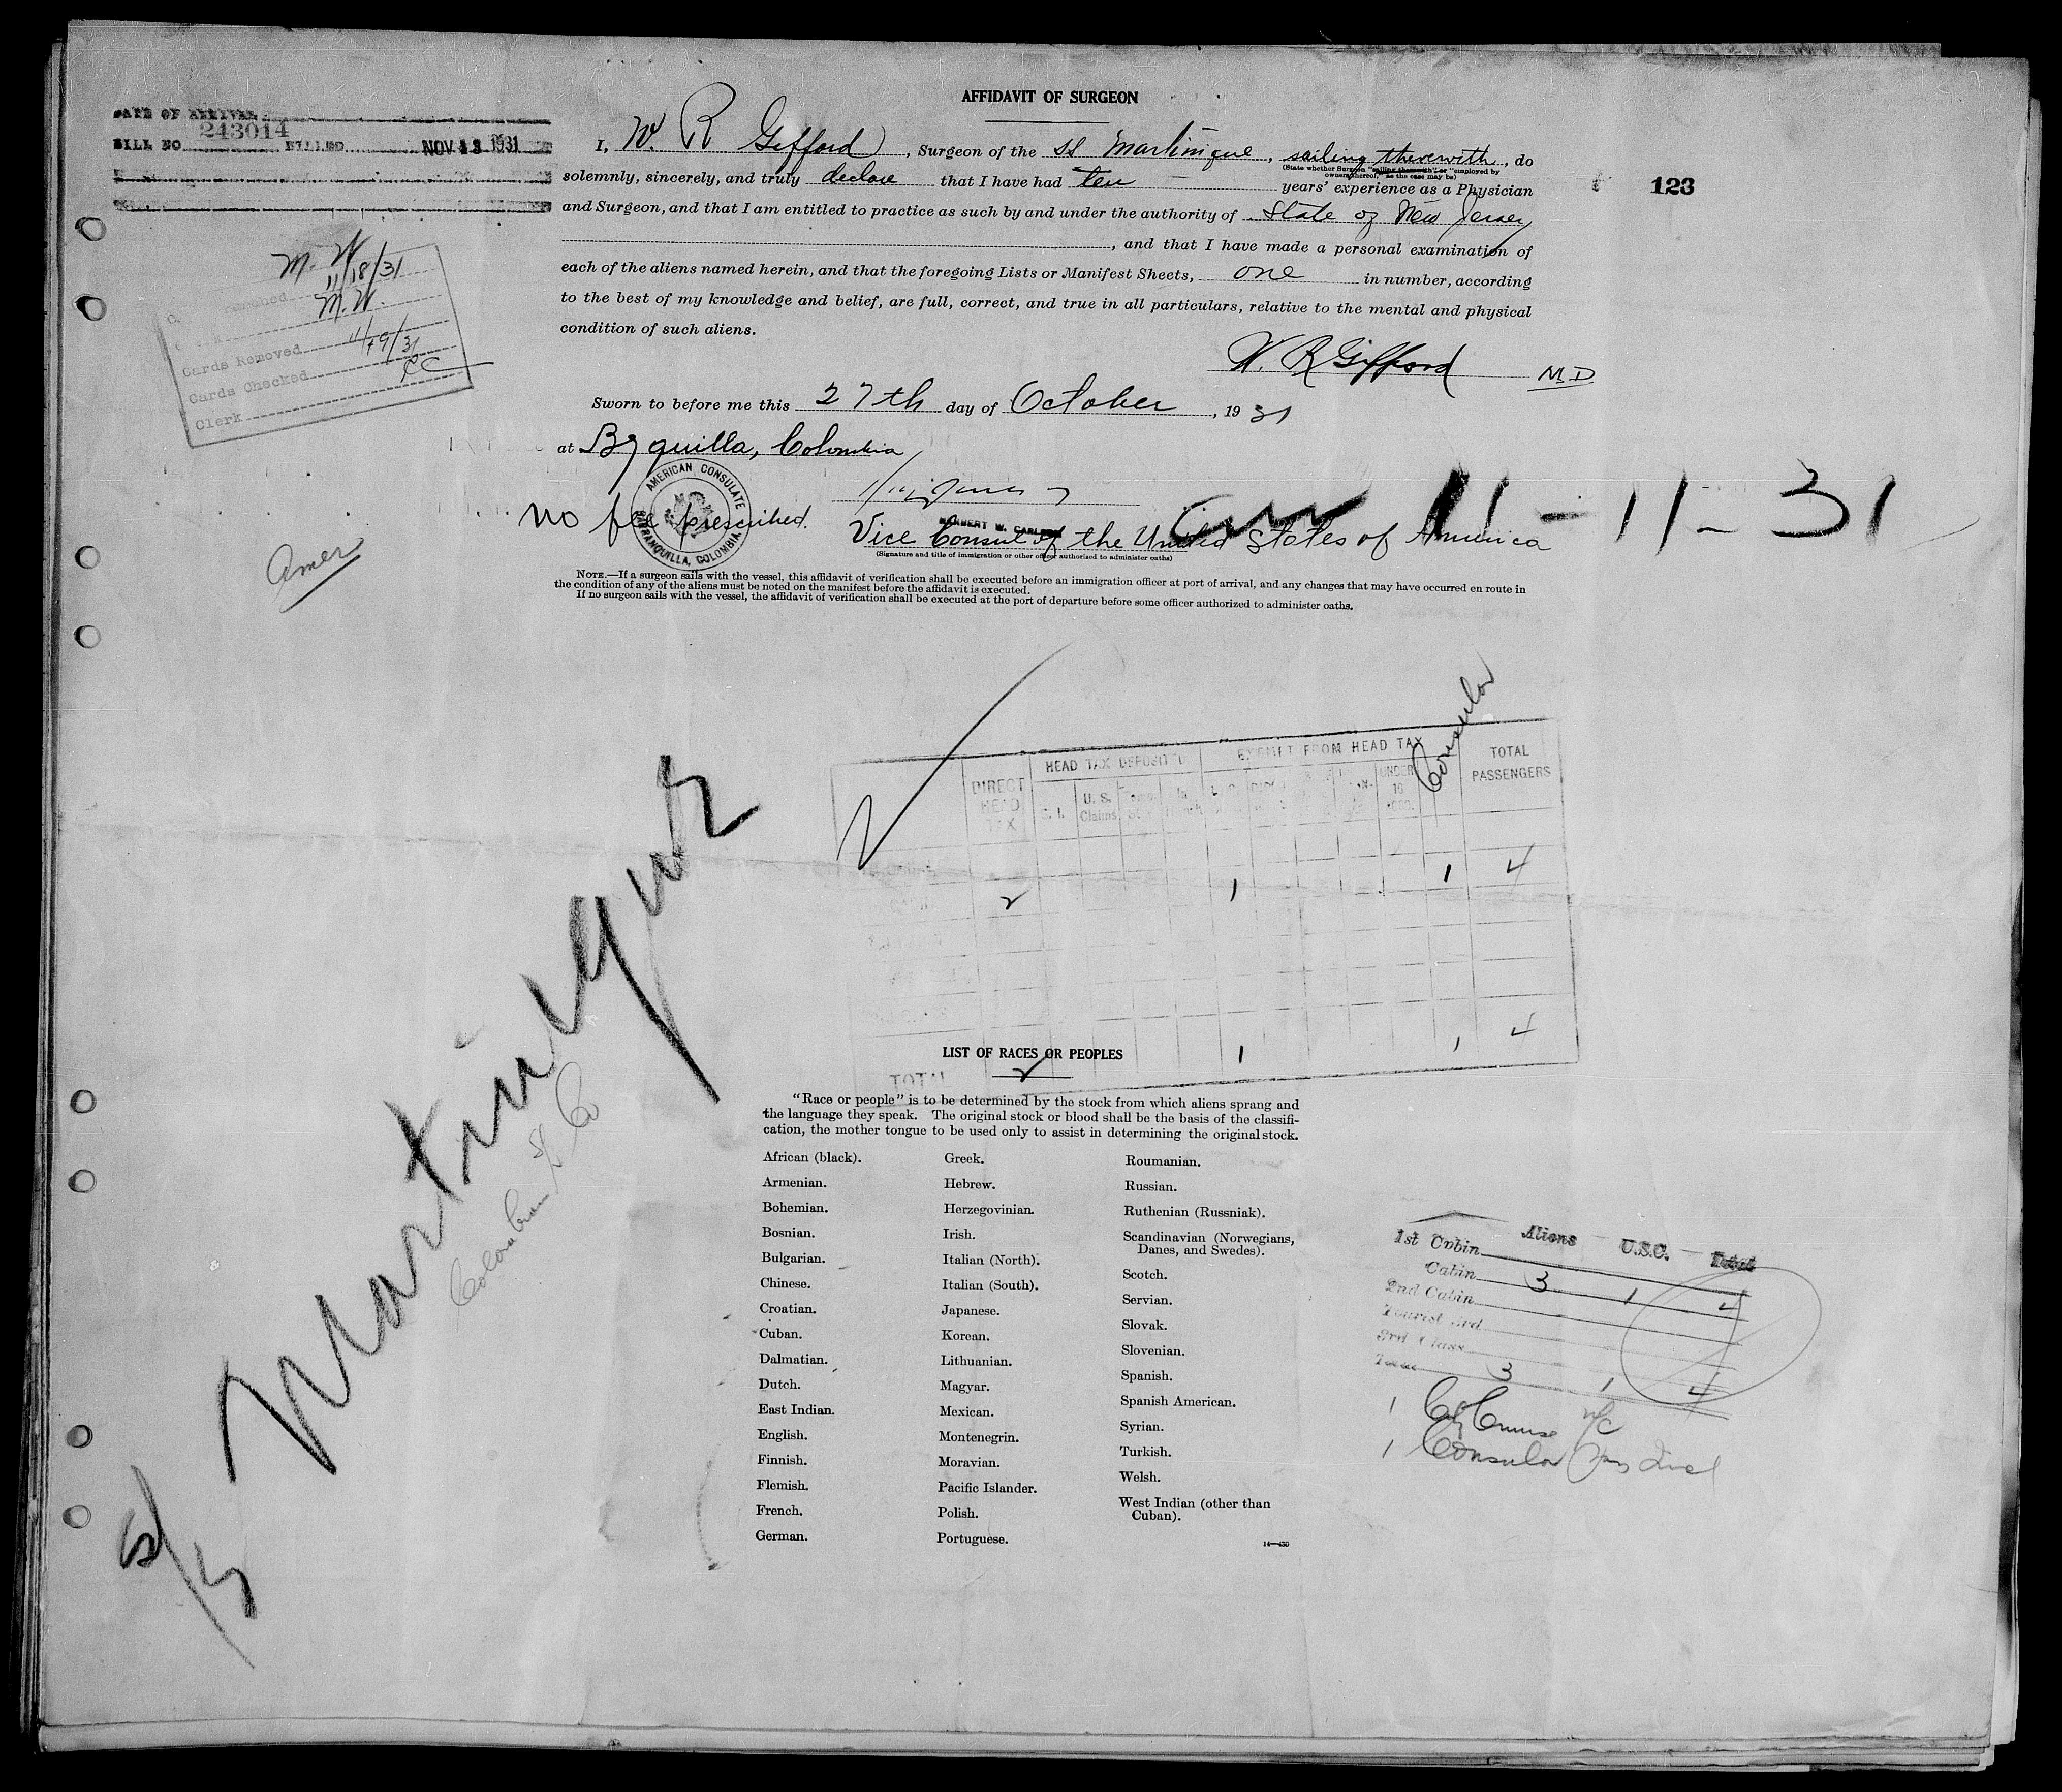 AFFIDAVIT OF SURGEON
DATE OF ARRIVAL
BILL NO 243014 BILLED NOV 13 1931
I, W. R Gifford, Surgeon of the SS Martinique, sailing therewith, do
(State whether Surgeon "sailing therewith" or "employed by
owners thereof," as the case may be)
solemnly, sincerely, and truly declare that I have had ten years' experience as a Physician
123
and Surgeon, and that I am entitled to practice as such by and under the authority of State of New Jersey
, and that I have made a personal examination of
each of the aliens named herein, and that the foregoing Lists or Manifest Sheets, one in number, according
to the best of my knowledge and belief, are full, correct, and true in all particulars, relative to the mental and physical
condition of such aliens.
W. R Gifford M.D
M. W
11/18/31
M. W.
Cards Removed 11/19/31
Cards Checked RC
Clerk
Sworn to before me this 27th day of October, 1931
at B/quilla, Colombia
AMERICAN CONSULATE
BARRANQUILLA, COLOMBIA
no fee prescribed.
11-11-31
Vice Consul of the United States of America
(Signature and title of immigration or other officer authorized to administer oaths)
Amer
NOTE.—If a surgeon sails with the vessel, this affidavit of verification shall be executed before an immigration officer at port of arrival, and any changes that may have occurred en route in
the condition of any of the aliens must be noted on the manifest before the affidavit is executed.
If no surgeon sails with the vessel, the affidavit of verification shall be executed at the port of departure before some officer authorized to administer oaths.
DIRECT HEAD TAX
HEAD TAX DEPOSITED
U. S. Claims
EXEMPT FROM HEAD TAX
UNDER 16
Consular
TOTAL PASSENGERS
2 1 1 4
TOTAL 2 1 1 4
Martinique
Colombian SS Co
LIST OF RACES OR PEOPLES
"Race or people" is to be determined by the stock from which aliens sprang and
the language they speak. The original stock or blood shall be the basis of the classifi-
cation, the mother tongue to be used only to assist in determining the original stock.
African (black).
Armenian.
Bohemian.
Bosnian.
Bulgarian.
Chinese.
Croatian.
Cuban.
Dalmatian.
Dutch.
East Indian.
English.
Finnish.
Flemish.
French.
German.
Greek.
Hebrew.
Herzegovinian.
Irish.
Italian (North).
Italian (South).
Japanese.
Korean.
Lithuanian.
Magyar.
Mexican.
Montenegrin.
Moravian.
Pacific Islander.
Polish.
Portuguese.
Roumanian.
Russian.
Ruthenian (Russniak).
Scandinavian (Norwegians,
Danes, and Swedes).
Scotch.
Servian.
Slovak.
Slovenian.
Spanish.
Spanish American.
Syrian.
Turkish.
Welsh.
West Indian (other than
Cuban).
14—430
Aliens U.S.C. Total
1st Cabin
Cabin 3 1 4
2nd Cabin
Tourist 3rd
3rd Class
Total 3 1 4
1
1 Consular